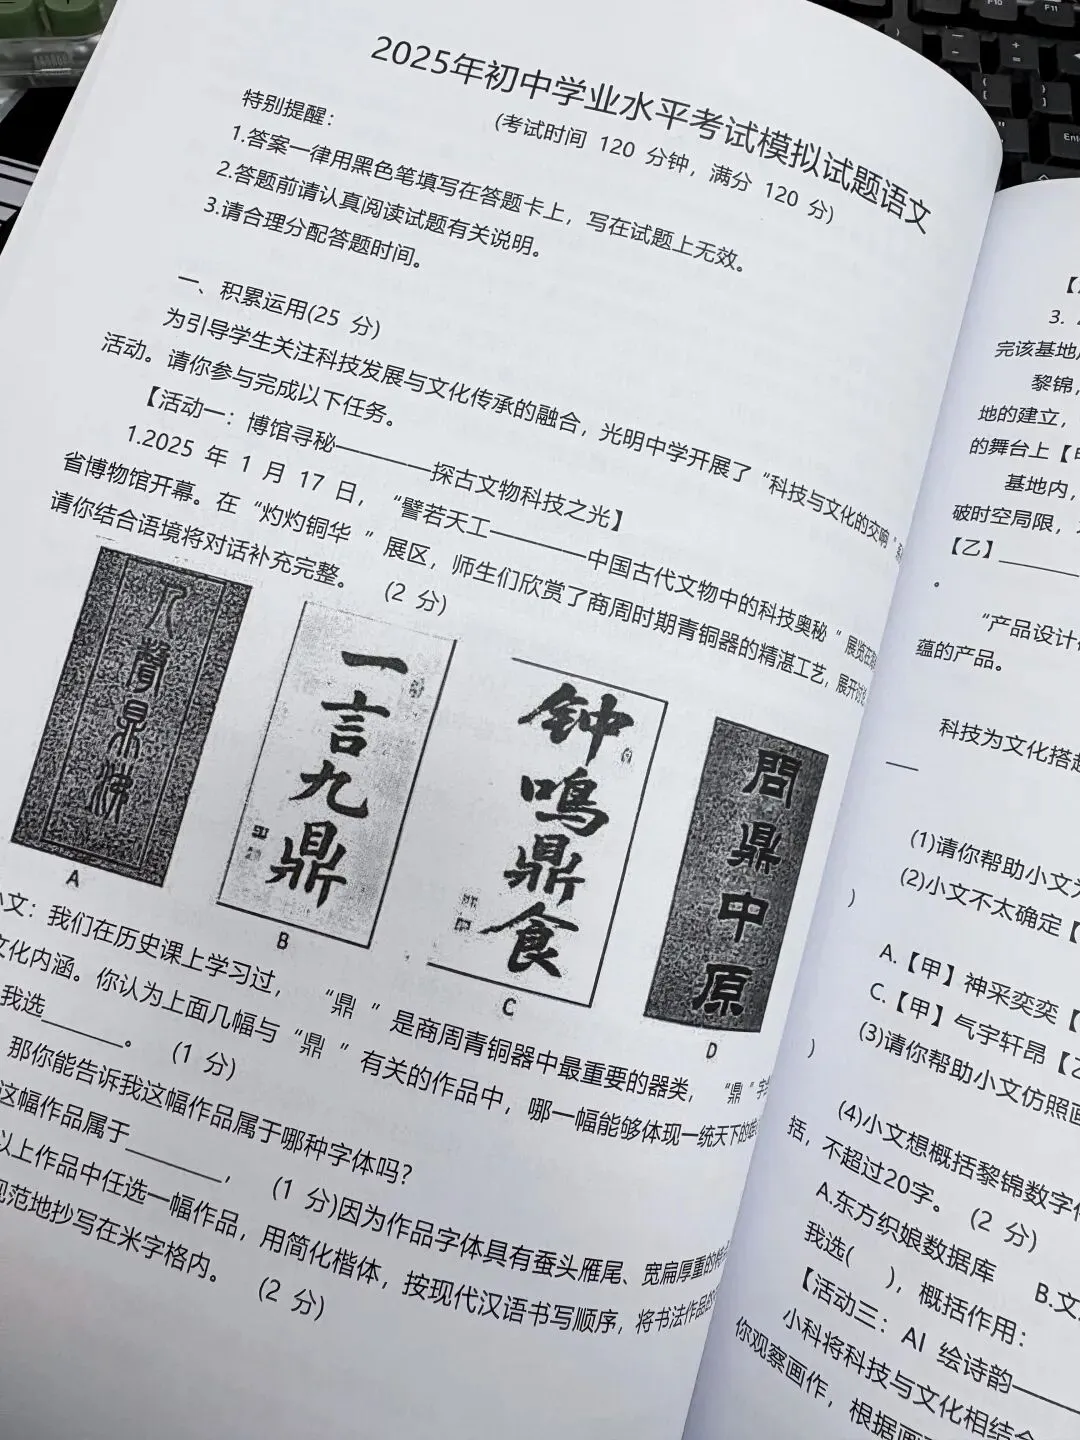 2025年初中学业水平考试模拟试题语文
(考试时间 120 分钟，满分 120 分)
特别提醒：
1.答案一律用黑色笔填写在答题卡上，写在试题上无效。
2.答题前请认真阅读试题有关说明。
3.请合理分配答题时间。
一、积累运用(25 分)
为引导学生关注科技发展与文化传承的融合，光明中学开展了“科技与文化的交响”
活动。请你参与完成以下任务。
【活动一：博馆寻秘————探古文物科技之光】
1.2025 年 1 月 17 日，“譬若天工————中国古代文物中的科技奥秘 ”展览在
省博物馆开幕。在“灼灼铜华 ”展区，师生们欣赏了商周时期青铜器的精湛工艺，展开讨论
请你结合语境将对话补充完整。 (2 分)
一言九鼎
钟鸣鼎食
問鼎中原
A
B
C
D
文：我们在历史课上学习过， “鼎 ”是商周青铜器中最重要的器类， “鼎 ”字
文化内涵。你认为上面几幅与“鼎 ”有关的作品中，哪一幅能够体现一统天下的
我选______。 (1 分)
那你能告诉我这幅作品属于哪种字体吗?
这幅作品属于______， (1 分)因为作品字体具有蚕头雁尾、宽扁厚重的特
以上作品中任选一幅作品，用简化楷体，按现代汉语书写顺序，将书法作品的
规范地抄写在米字格内。 (2 分)
3.
完该基地
黎锦，
地的建立，
的舞台上【甲
基地内，
破时空局限，
【乙】
。
“产品设计
蕴的产品。
科技为文化搭起
(1)请你帮助小文
(2)小文不太确定【
)
A.【甲】神采奕奕【
C.【甲】气宇轩昂【乙
(3)请你帮助小文仿照画
)
(4)小文想概括黎锦数字
括，不超过20字。 (2 分)
A.东方织娘数据库 B.文
我选( )，概括作用：
【活动三：AI 绘诗韵——
小科将科技与文化相结合
你观察画作，根据画
F10
F11
Enter